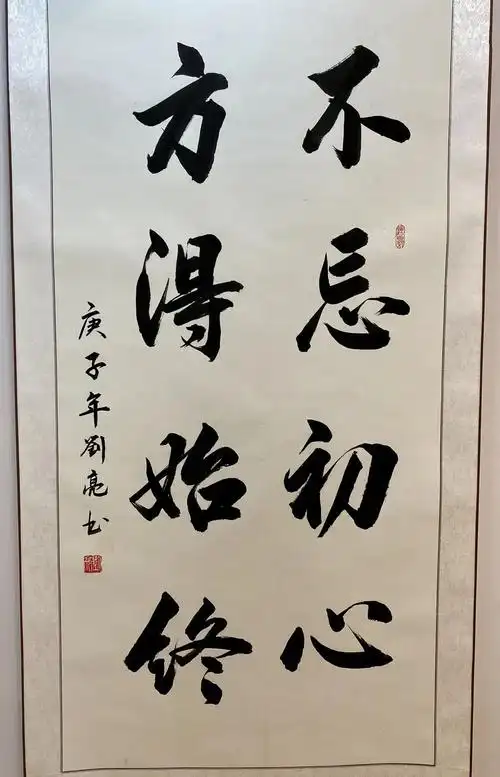 不忘初心
方得始终
庚子年劉亮书